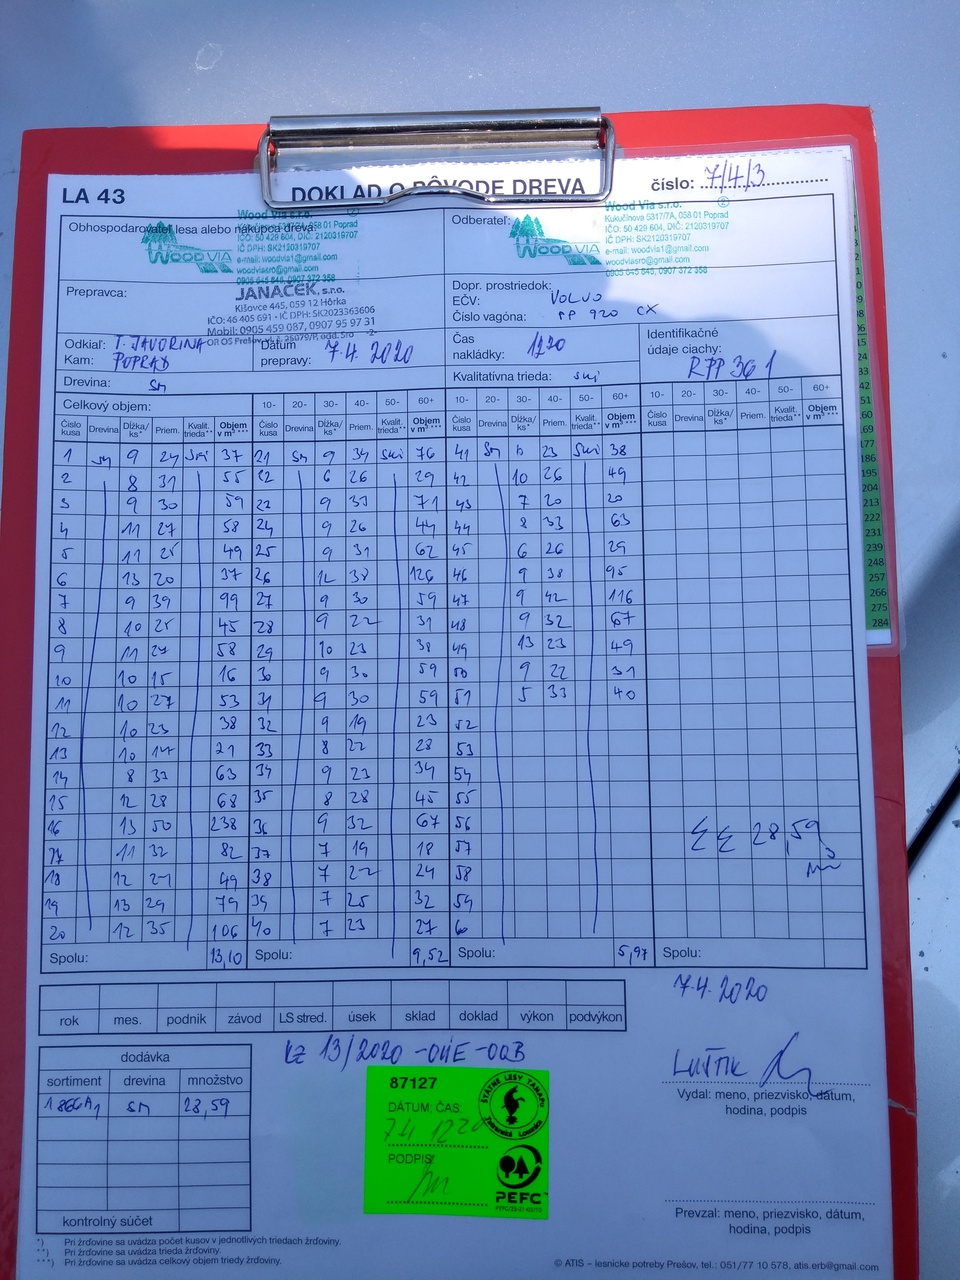 LA 43
DOKLAD O PÔVODE DREVA
číslo: 7/4/3
Obhospodarovateľ lesa alebo nákupca dreva:
Wood Via s.r.o.
WOOD VIA
058 01 Poprad
IČO: 50 429 604, DIČ: 2120319707
IČ DPH: SK2120319707
e-mail: woodvia1@gmail.com
woodviasro@gmail.com
0905 645 848, 0907 372 358
Odberateľ:
Wood Via s.r.o.
WOOD VIA
Kukučínova 5317/7A, 058 01 Poprad
IČO: 50 429 604, DIČ: 2120319707
IČ DPH: SK2120319707
e-mail: woodvia1@gmail.com
woodviasro@gmail.com
0905 645 848, 0907 372 358
Prepravca:
JANAČEK, s.r.o.
Kišovce 445, 059 12 Hôrka
IČO: 46 405 691 - IČ DPH: SK2023363606
Mobil: 0905 459 087, 0907 95 97 31
Dopr. prostriedok:
EČV: VOLVO
Číslo vagóna: PP 920 CX
Odkiaľ: T. JAVORINA
Kam: POPRAD
Dátum prepravy: 7.4. 2020
Čas nakládky: 1220
Identifikačné údaje ciachy: RPP 36 1
Drevina: SM
Kvalitatívna trieda:
Celkový objem: 10- 20- 30- 40- 50- 60+ 10- 20- 30- 40- 50- 60+ 10- 20- 30- 40- 50- 60+
Číslo kusa Drevina Dĺžka/ks* Priem. Kvalit. trieda** Objem v m³ *** Číslo kusa Drevina Dĺžka/ks* Priem. Kvalit. trieda** Objem v m³ *** Číslo kusa Drevina Dĺžka/ks* Priem. Kvalit. trieda** Objem v m³ *** Číslo kusa Drevina Dĺžka/ks* Priem. Kvalit. trieda** Objem v m³ ***
1 SM 9 24 37 21 SM 9 34 76 41 SM 23 38
2 8 31 55 22 6 26 29 42 10 26 49
3 9 30 59 9 33 71 43 7 20 20
4 11 27 58 24 9 26 44 44 8 33 63
5 11 25 49 25 9 31 62 45 6 26 29
6 13 20 37 26 12 38 126 46 9 38 95
7 9 39 99 27 9 30 59 47 9 42 116
8 10 25 45 28 9 22 31 48 9 32 67
9 11 27 58 29 10 23 38 49 13 23 49
10 10 15 16 30 9 30 59 50 9 22 31
11 10 27 53 31 9 30 59 51 5 33 40
12 10 23 38 32 9 19 23 52
13 10 17 21 33 8 22 28 53
14 8 33 63 34 9 23 34 54
15 12 28 68 35 8 28 45 55
16 13 50 238 36 9 32 67 56
17 11 32 82 37 7 19 18 57
18 12 49 38 7 22 24 58
19 13 29 79 39 7 25 32 59
20 12 35 106 40 7 23 27 60
ΣΣ 28,59 m3
Spolu: 13,10 Spolu: 9,52 Spolu: 5,97 Spolu:
7.4.2020
rok mes. podnik závod LS stred. úsek sklad doklad výkon podvýkon
dodávka
sortiment drevina množstvo
SM 28,59
kontrolný súčet
87127
DÁTUM, ČAS
PODPIS
ŠTÁTNE LESY TANAPU
Tatranská Lomnica
PEFC
Vydal: meno, priezvisko, dátum,
hodina, podpis
Prevzal: meno, priezvisko, dátum,
hodina, podpis
*) Pri žrďovine sa uvádza počet kusov v jednotlivých triedach žrďoviny.
**) Pri žrďovine sa uvádza trieda žrďoviny.
***) Pri žrďovine sa uvádza celkový objem triedy žrďoviny.
© ATIS – lesnícke potreby Prešov, tel.: 051/77 10 578, atis.erb@gmail.com
177
186
195
204
213
222
231
239
248
257
266
275
284